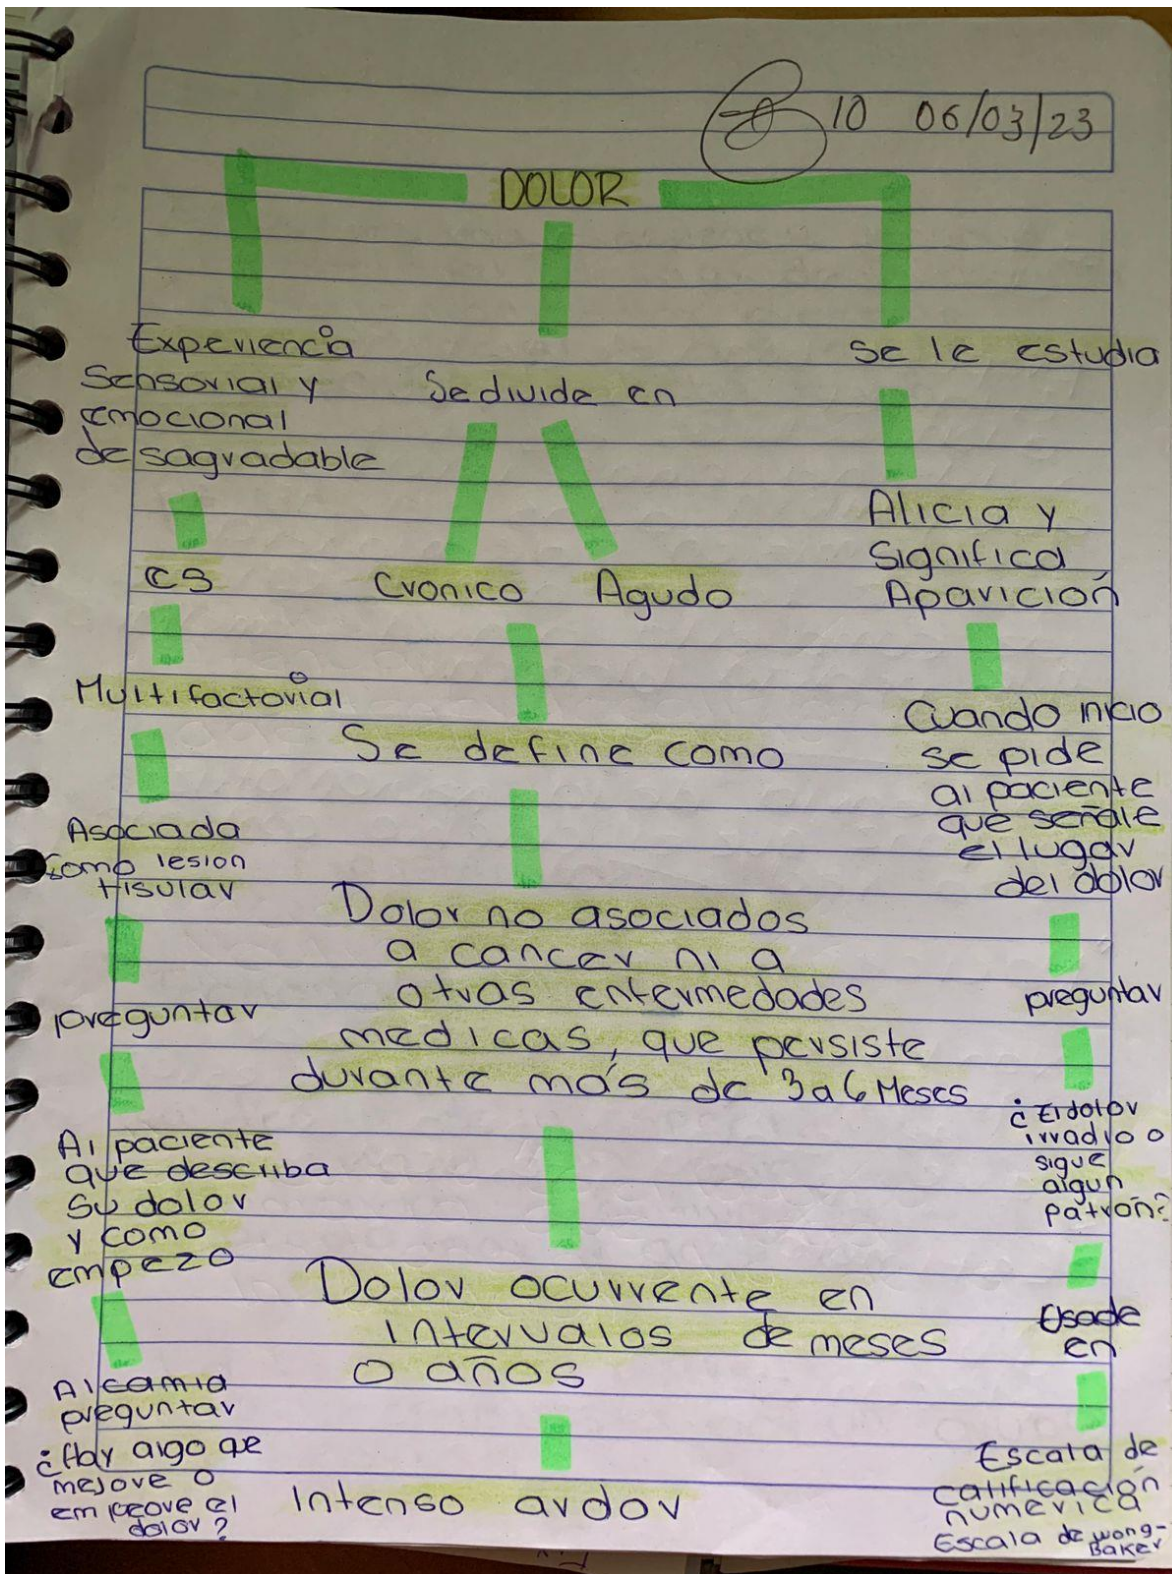 10 06/03/23
DOLOR
Experiencia
Sensorial y
emocional
desagradable
es
Multifactorial
Asociada
como lesion
tisular
preguntar
Al paciente
que describa
su dolor
y como
empezo
Alcamia
preguntar
¿Hay algo que
mejore o
empeore el
dolor?
Se divide en
Cronico Agudo
Se define como
Dolor no asociados
a cancer ni a
otras enfermedades
medicas, que persiste
durante más de 3 a 6 Meses
Dolor ocurrente en
intervalos de meses
o años
Intenso ardor
Se le estudia
Alicia y
Significa
Aparición
Cuando inicio
se pide
al paciente
que señale
el lugar
del dolor
preguntar
¿El dolor
irradio o
sigue
algun
patrón?
en
Escala de
calificación
numerica
Escala de wong-
Baker